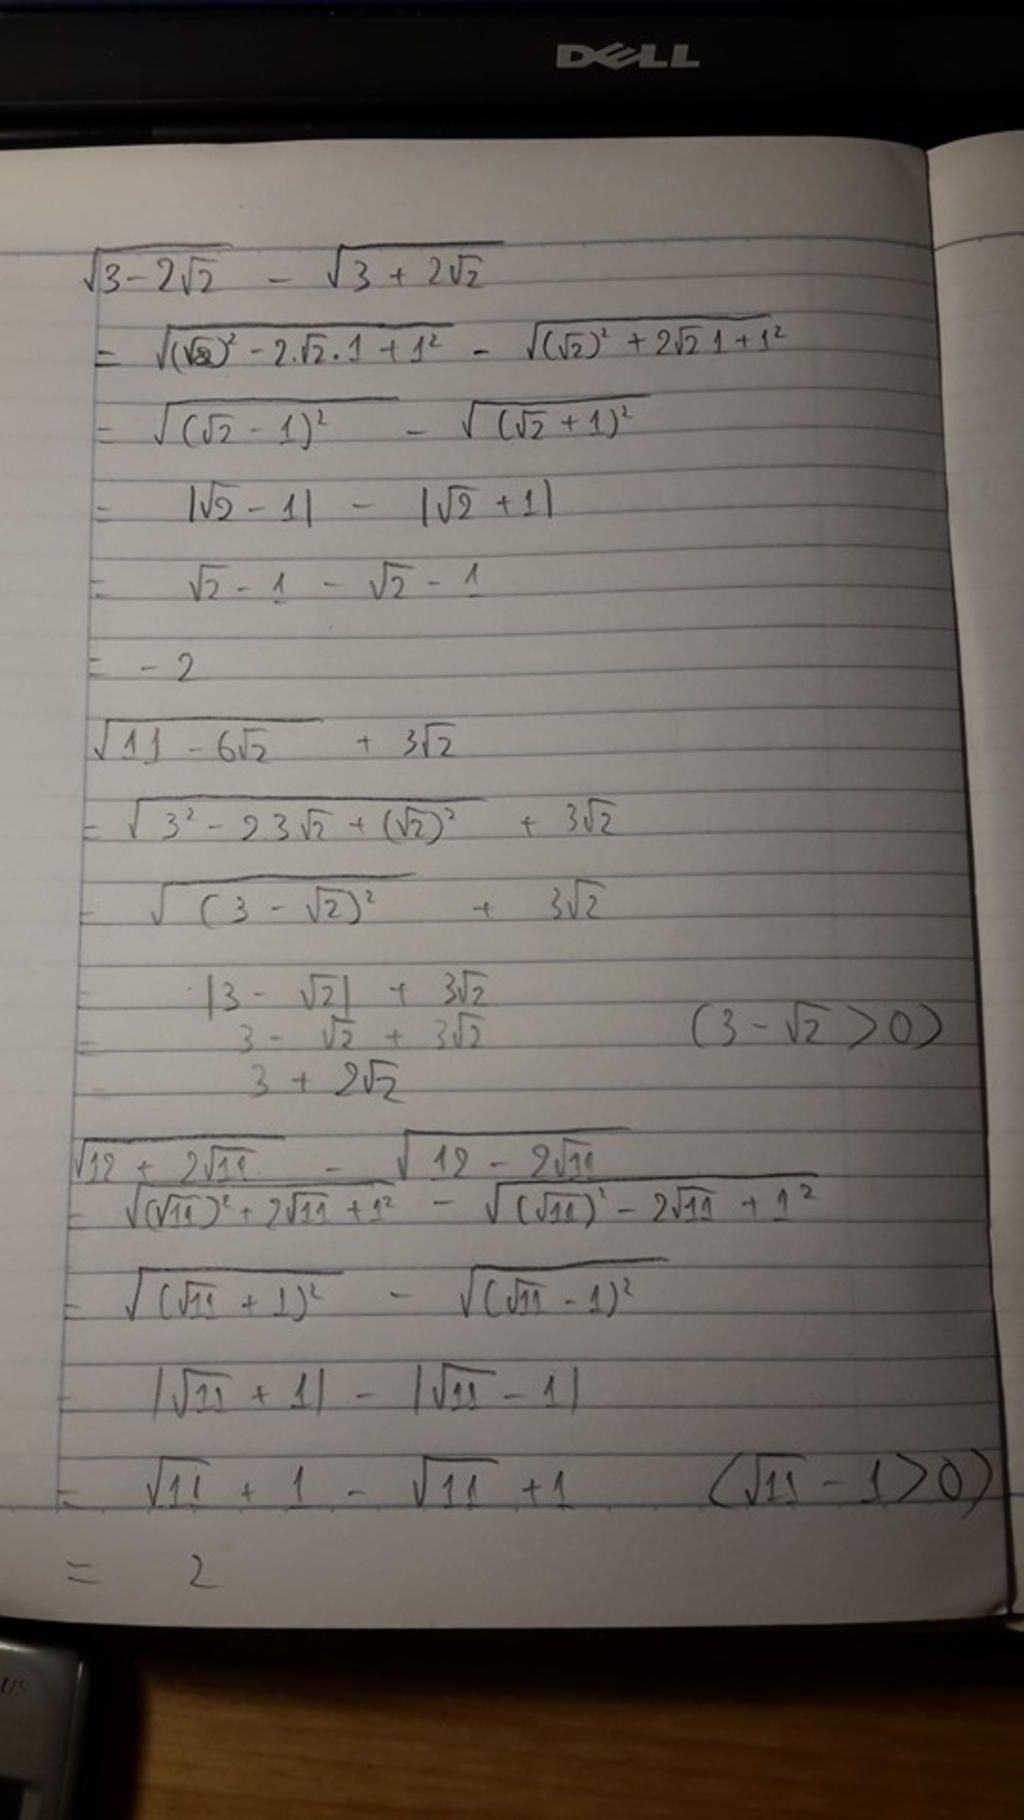 DELL
√(3 - 2√2) - √(3 + 2√2)
= √((√2)² - 2.√2.1 + 1²) - √((√2)² + 2√2 1 + 1²)
= √((√2 - 1)²) - √((√2 + 1)²)
= |√2 - 1| - |√2 + 1|
= √2 - 1 - √2 - 1
= - 2
√(11 - 6√2) + 3√2
= √(3² - 2 3√2 + (√2)²) + 3√2
= √((3 - √2)²) + 3√2
= |3 - √2| + 3√2
= 3 - √2 + 3√2 (3 - √2 > 0)
= 3 + 2√2
√(12 + 2√11) - √(12 - 2√11)
= √((√11)² + 2√11 + 1²) - √((√11)² - 2√11 + 1²)
= √((√11 + 1)²) - √((√11 - 1)²)
= |√11 + 1| - |√11 - 1|
= √11 + 1 - √11 + 1 (√11 - 1 > 0)
= 2